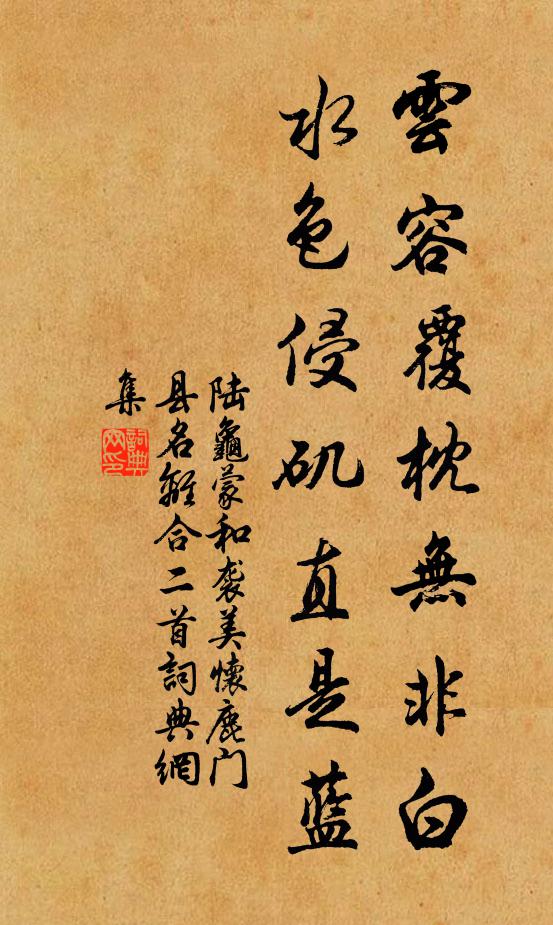 雲容覆枕無非白
水色侵矶直是藍
陆龜蒙和袭美懷鹿门
县名離合二首詞典網
集
詞典网印